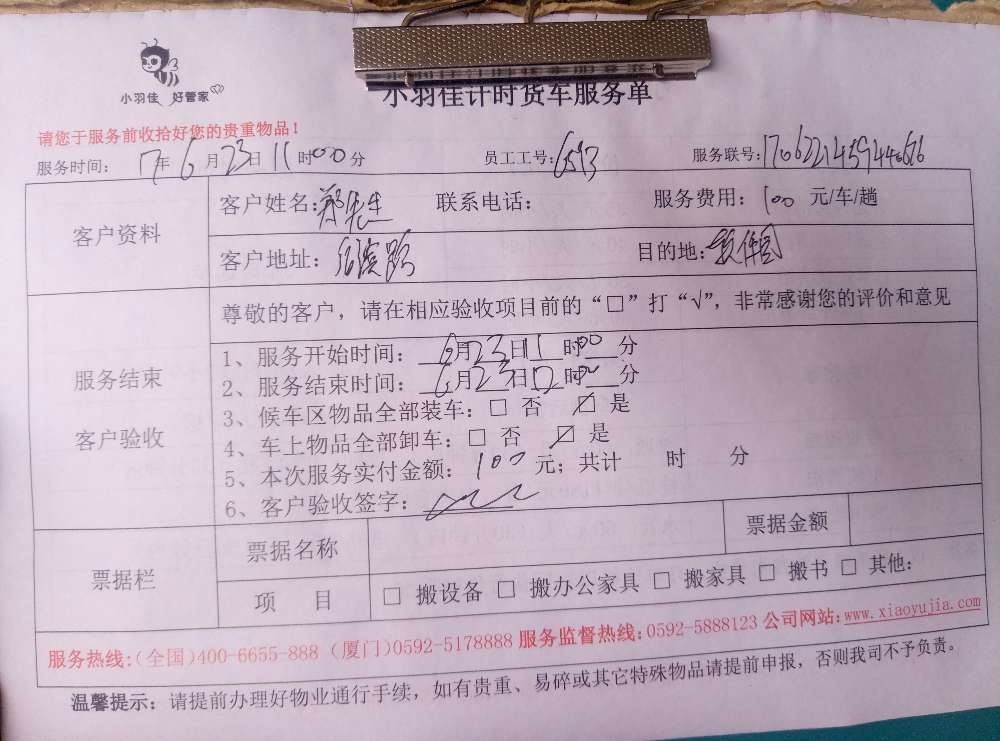 小羽佳 好管家
小羽佳计时货车服务单
请您于服务前收拾好您的贵重物品！
服务时间： 17年 6月 23日 11时00分 员工工号：6593 服务联号：
客户资料
客户姓名：郑先生 联系电话： 服务费用：100 元/车/趟
客户地址： 目的地：软件园
服务结束
客户验收
尊敬的客户，请在相应验收项目前的“□”打“√”，非常感谢您的评价和意见
1、服务开始时间： 6月23日11时00分
2、服务结束时间： 6月23日12时00分
3、候车区物品全部装车：□ 否 ☑ 是
4、车上物品全部卸车：□ 否 ☑ 是
5、本次服务实付金额： 100 元；共计 时 分
6、客户验收签字：
票据栏
票据名称 票据金额
项 目 □ 搬设备 □ 搬办公家具 □ 搬家具 □ 搬书 □ 其他：
服务热线：（全国）400-6655-888（厦门）0592-5178888 服务监督热线：0592-5888123 公司网站：www.xiaoyujia.com
温馨提示：请提前办理好物业通行手续，如有贵重、易碎或其它特殊物品请提前申报，否则我司不予负责。